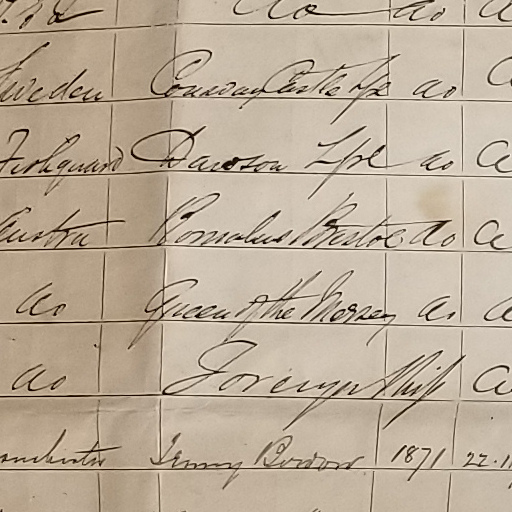 do do
Sweden Conway Castle Lpl do
Fishguard Dawson Lpl do
Austria Romulus Bristol do
do Queen of the Mersey do
do Foreign Ship
Jenny 1871 22.11